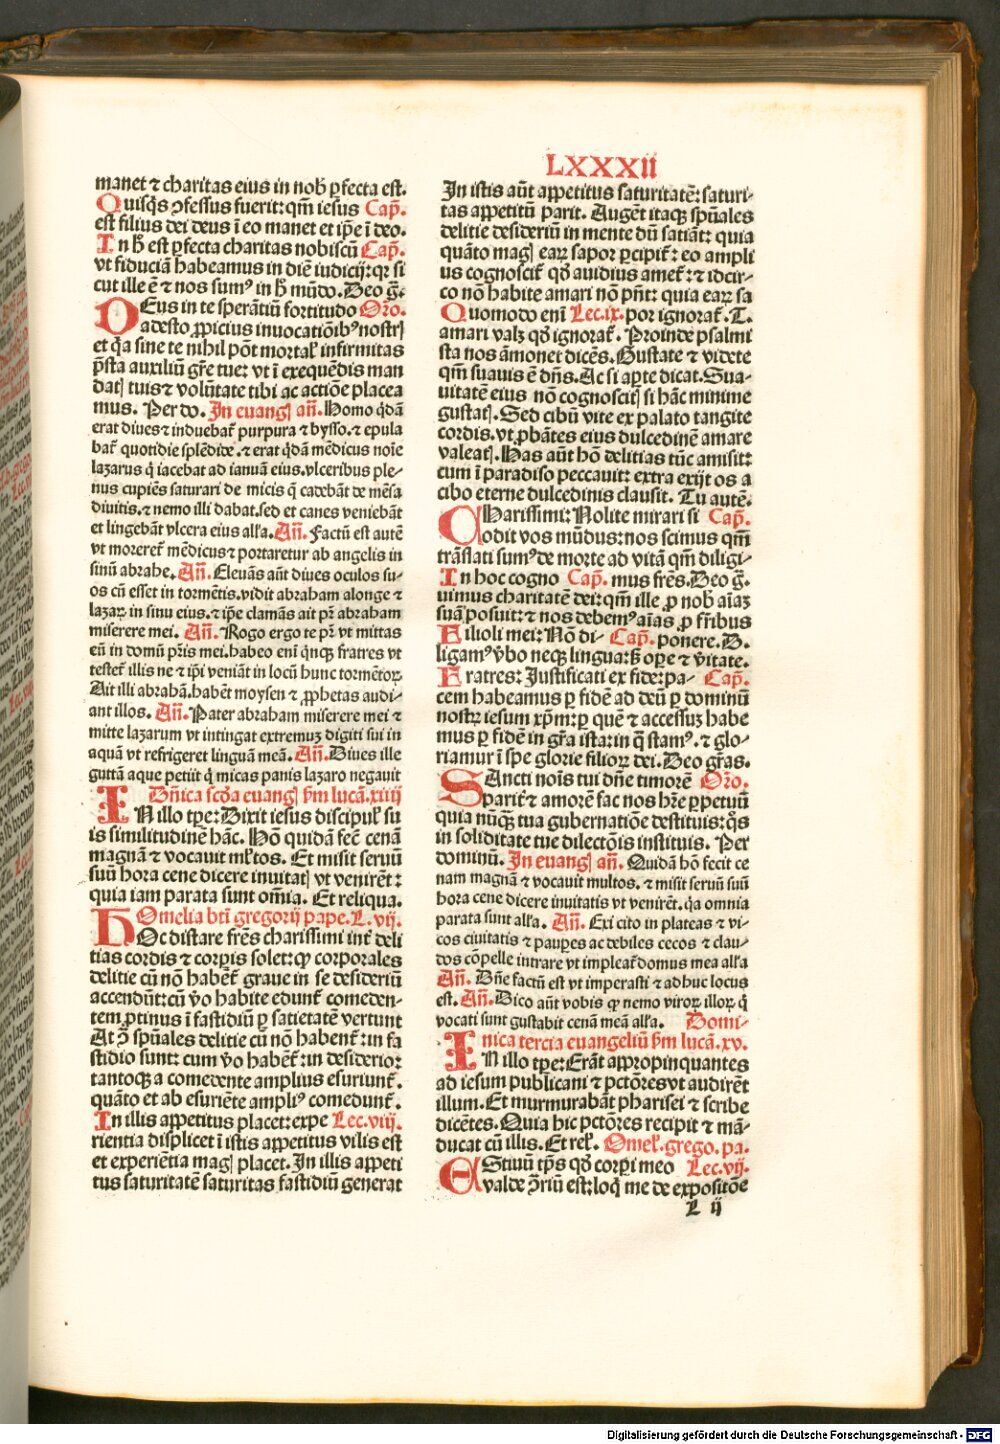 LXXXII
manet ⁊ charitas eius in nob̄ ꝑfecta est.
Quisq̄s ꝯfessus fuerit: qm̄ iesus Cap̄.
est filius dei deus ī eo manet et ip̄e ī deo.
In h̄ est ꝑfecta charitas nobiscū Cap̄.
vt fiduciā habeamus in diē iudicij: qꝛ si
cut ille ē ⁊ nos sumꝰ in h̄ mūdo. Deo g̅.
DEus in te sperātiū fortitudo Oro.
adesto ꝓpicius inuocatiōibꝰ nostrꝭ
et q̄a sine te nihil pōt mortaƚ infirmitas
p̄sta auxiliū gr̄e tue: vt ī exequēdis man
datꝭ tuis ⁊ volūtate tibi ac actiōe placea
mus. Per do. In euangꝭ an̄. Homo q̄dā
erat diues ⁊ induebat̄ purpura ⁊ bysso. ⁊ epula
bat̄ quotidie splēdide. ⁊ erat q̄dā mēdicus noīe
lazarus q̄ iacebat ad ianuā eius. vlceribus ple-
nus cupiēs saturari de micis q̄ cadebāt de mēsa
diuitis. ⁊ nemo illi dabat. sed et canes veniebāt
et lingebāt vlcera eius aƚƚa. An̄. Factū est autē
vt moreret̄ mēdicus ⁊ portaretur ab angelis in
sinū abrahe. An̄. Eleuās aūt diues oculos su-
os cū esset in tormētis. vidit abraham alonge ⁊
lazaꝝ in sinu eius. ⁊ ip̄e clamās ait pr̄ abraham
miserere mei. An̄. Rogo ergo te pr̄ vt mittas
eū in domū pr̄is mei. habeo eni q̄nqꝫ fratres vt
testet̄ illis ne ⁊ ip̄i veniāt in locū hunc tormētoꝝ
Ait illi abrahā. habēt moysen ⁊ ꝓphetas audi-
ant illos. An̄. Pater abraham miserere mei ⁊
mitte lazarum vt intingat extremuꝫ digiti sui in
aquā vt refrigeret linguā meā. An̄. Diues ille
guttā aque petiit q̄ micas panis lazaro negauit
Dn̄ica scd̄a euangꝭ ẜm lucā. xiiij
IN illo tp̄e: Dixit iesus discipuƚ su
is similitudinē hāc. Hō quidā fec̄ cenā
magnā ⁊ vocauit mƚtos. Et misit seruū
suū hora cene dicere inuitatꝭ vt venirēt:
quia iam parata sunt om̄ia. Et reliqua.
Omelia bti gregorij pape. L. vij.
HOc distare fr̄es charissimi int̄ deli
tias cordis ⁊ corp̄is solet: qꝫ corporales
delitie cū nō habēt̄ graue in se desideriū
accendūt: cū ꝟo habite edunt̄ comeden-
tem ꝓtinus ī fastidiū ꝑ satietatē vertunt
At ꝯ̄ sp̄uales delitie cū nō habent̄: in fa
stidio sunt: cum ꝟo habēt̄: in desiderio:
tantoqꝫ a comedente amplius esuriunt̄.
quāto et ab esuriēte ampliꝰ comedunt̄.
In illis appetitus placet: expe Lec. viij.
rientia displicet ī istis appetitus vilis est
et experiētia magꝭ placet. In illis appeti
tus saturitatē saturitas fastidiū generat
In istis aūt appetitus saturitatē: saturi-
tas appetitū parit. Augēt itaqꝫ sp̄uales
delitie desideriū in mente dū satiāt: quia
quāto magꝭ eaꝝ sapor ꝑcipit̄: eo ampli
us cognoscit̄ qd̄ auidius amet̄: ⁊ idcir-
co nō habite amari nō pn̄t: quia eaꝝ sa
Quomodo eni Lec. ix. por ignorat̄. T.
amari valꝫ qd̄ ignorat̄. Proinde psalmi
sta nos āmonet dicēs. Gustate ⁊ videte
qm̄ suauis ē dn̄s. Ac si aꝑte dicat. Sua-
uitatē eius nō cognoscitꝭ si hāc minime
gustatꝭ. Sed cibū vite ex palato tangite
cordis. vt ꝓbātes eius dulcedinē amare
valeatꝭ. Has aūt hō delitias tūc amisit:
cum ī paradiso peccauit: extra exijt os a
cibo eterne dulcedinis clausit. Tu autē.
CHarissimi: Nolite mirari si Cap̄.
odit vos mūdus: nos scimus qm̄
trāslati sumꝰ de morte ad vitā qm̄ diligi-
In hoc cogno Cap̄. mus fr̄es. Deo g̅.
uimus charitatē dei: qm̄ ille ꝓ nob̄ aīaꝫ
suā posuit: ⁊ nos debemꝰ aīas ꝓ fr̄ibus
Filioli mei: Nō di- Cap̄. ponere. D.
ligamꝰ ꝟbo neqꝫ lingua: ẜꝫ oꝑe ⁊ ꝟitate.
Fratres: Justificati ex fide: pa- Cap̄.
cem habeamus ꝑ fidē ad deū ꝑ dominū
nostꝝ iesum xp̄m: ꝑ quē ⁊ accessuꝫ habe
mus ꝑ fidē in gr̄a ista: in q̄ stamꝰ. ⁊ glo-
riamur ī spe glorie filioꝝ dei. Deo gr̄as.
SAncti nois tui dn̄e timorē Oro.
parit̄ ⁊ amorē fac nos hr̄e ꝑpetuū
quia nūqꝫ tua gubernatiōe destituis: q̄s
in soliditate tue dilectōis instituis. Per
dominū. In euangꝭ an̄. Quidā hō fecit ce
nam magnā ⁊ vocauit multos. ⁊ misit seruū suū
hora cene dicere inuitatis vt venirēt. q̄a omnia
parata sunt aƚƚa. An̄. Exi cito in plateas ⁊ vi-
cos ciuitatis ⁊ pauꝑes ac debiles cecos ⁊ clau-
dos cōpelle intrare vt impleat̄ domus mea aƚƚa
An̄. Dn̄e factū est vt imperasti ⁊ adhuc locus
est. An̄. Dico aūt vobis qꝫ nemo viroꝝ illoꝝ q̄
vocati sunt gustabit cenā meā aƚƚa. Domi-
nica tercia euangeliū ẜm lucā. xv.
IN illo tp̄e: Erāt appropinquantes
ad iesum publicani ⁊ pctōres vt audirēt
illum. Et murmurabāt pharisei ⁊ scribe
dicētes. Quia hic pctōres recipit ⁊ mā-
ducat cū illis. Et reƚ. Omeƚ. grego. pa.
EStiuū tp̄s qd̄ corꝑi meo Lec. vij.
valde ꝯ̄riū est: loq̄ me de expositōe
L ij
Digitalisierung gefördert durch die Deutsche Forschungsgemeinschaft - DFG